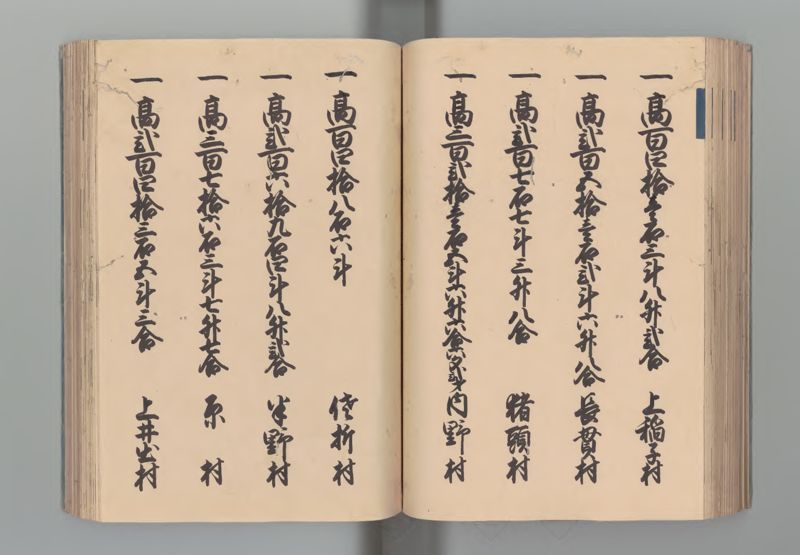 一 高百四拾壱石三斗八升弐合 上稲子村
一 高弐百五拾壱石弐斗六升八合 長貫村
一 高弐百七石七斗三升八合 猪頭村
一 高三百弐拾壱石五斗六升六合六勺 内野村
一 高百四拾八石六斗 佐折村
一 高弐百六拾九石四斗八升弐合 半野村
一 高三百七拾六石三斗七升七合 原 村
一 高弐百四拾三石五斗三合 上井出村